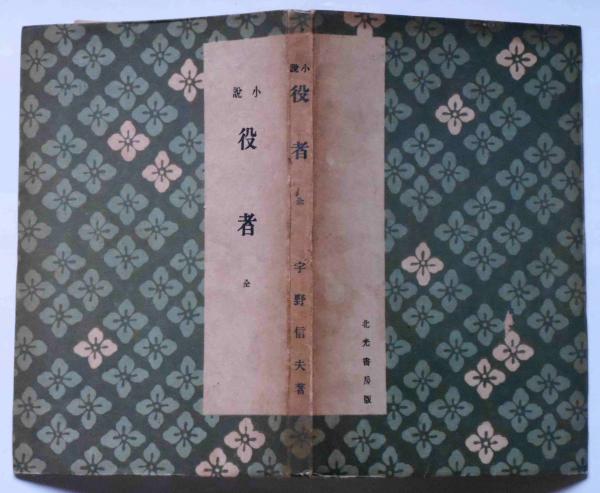 小説
役者
全
小説
役者
全
宇野信夫著
北光書房版